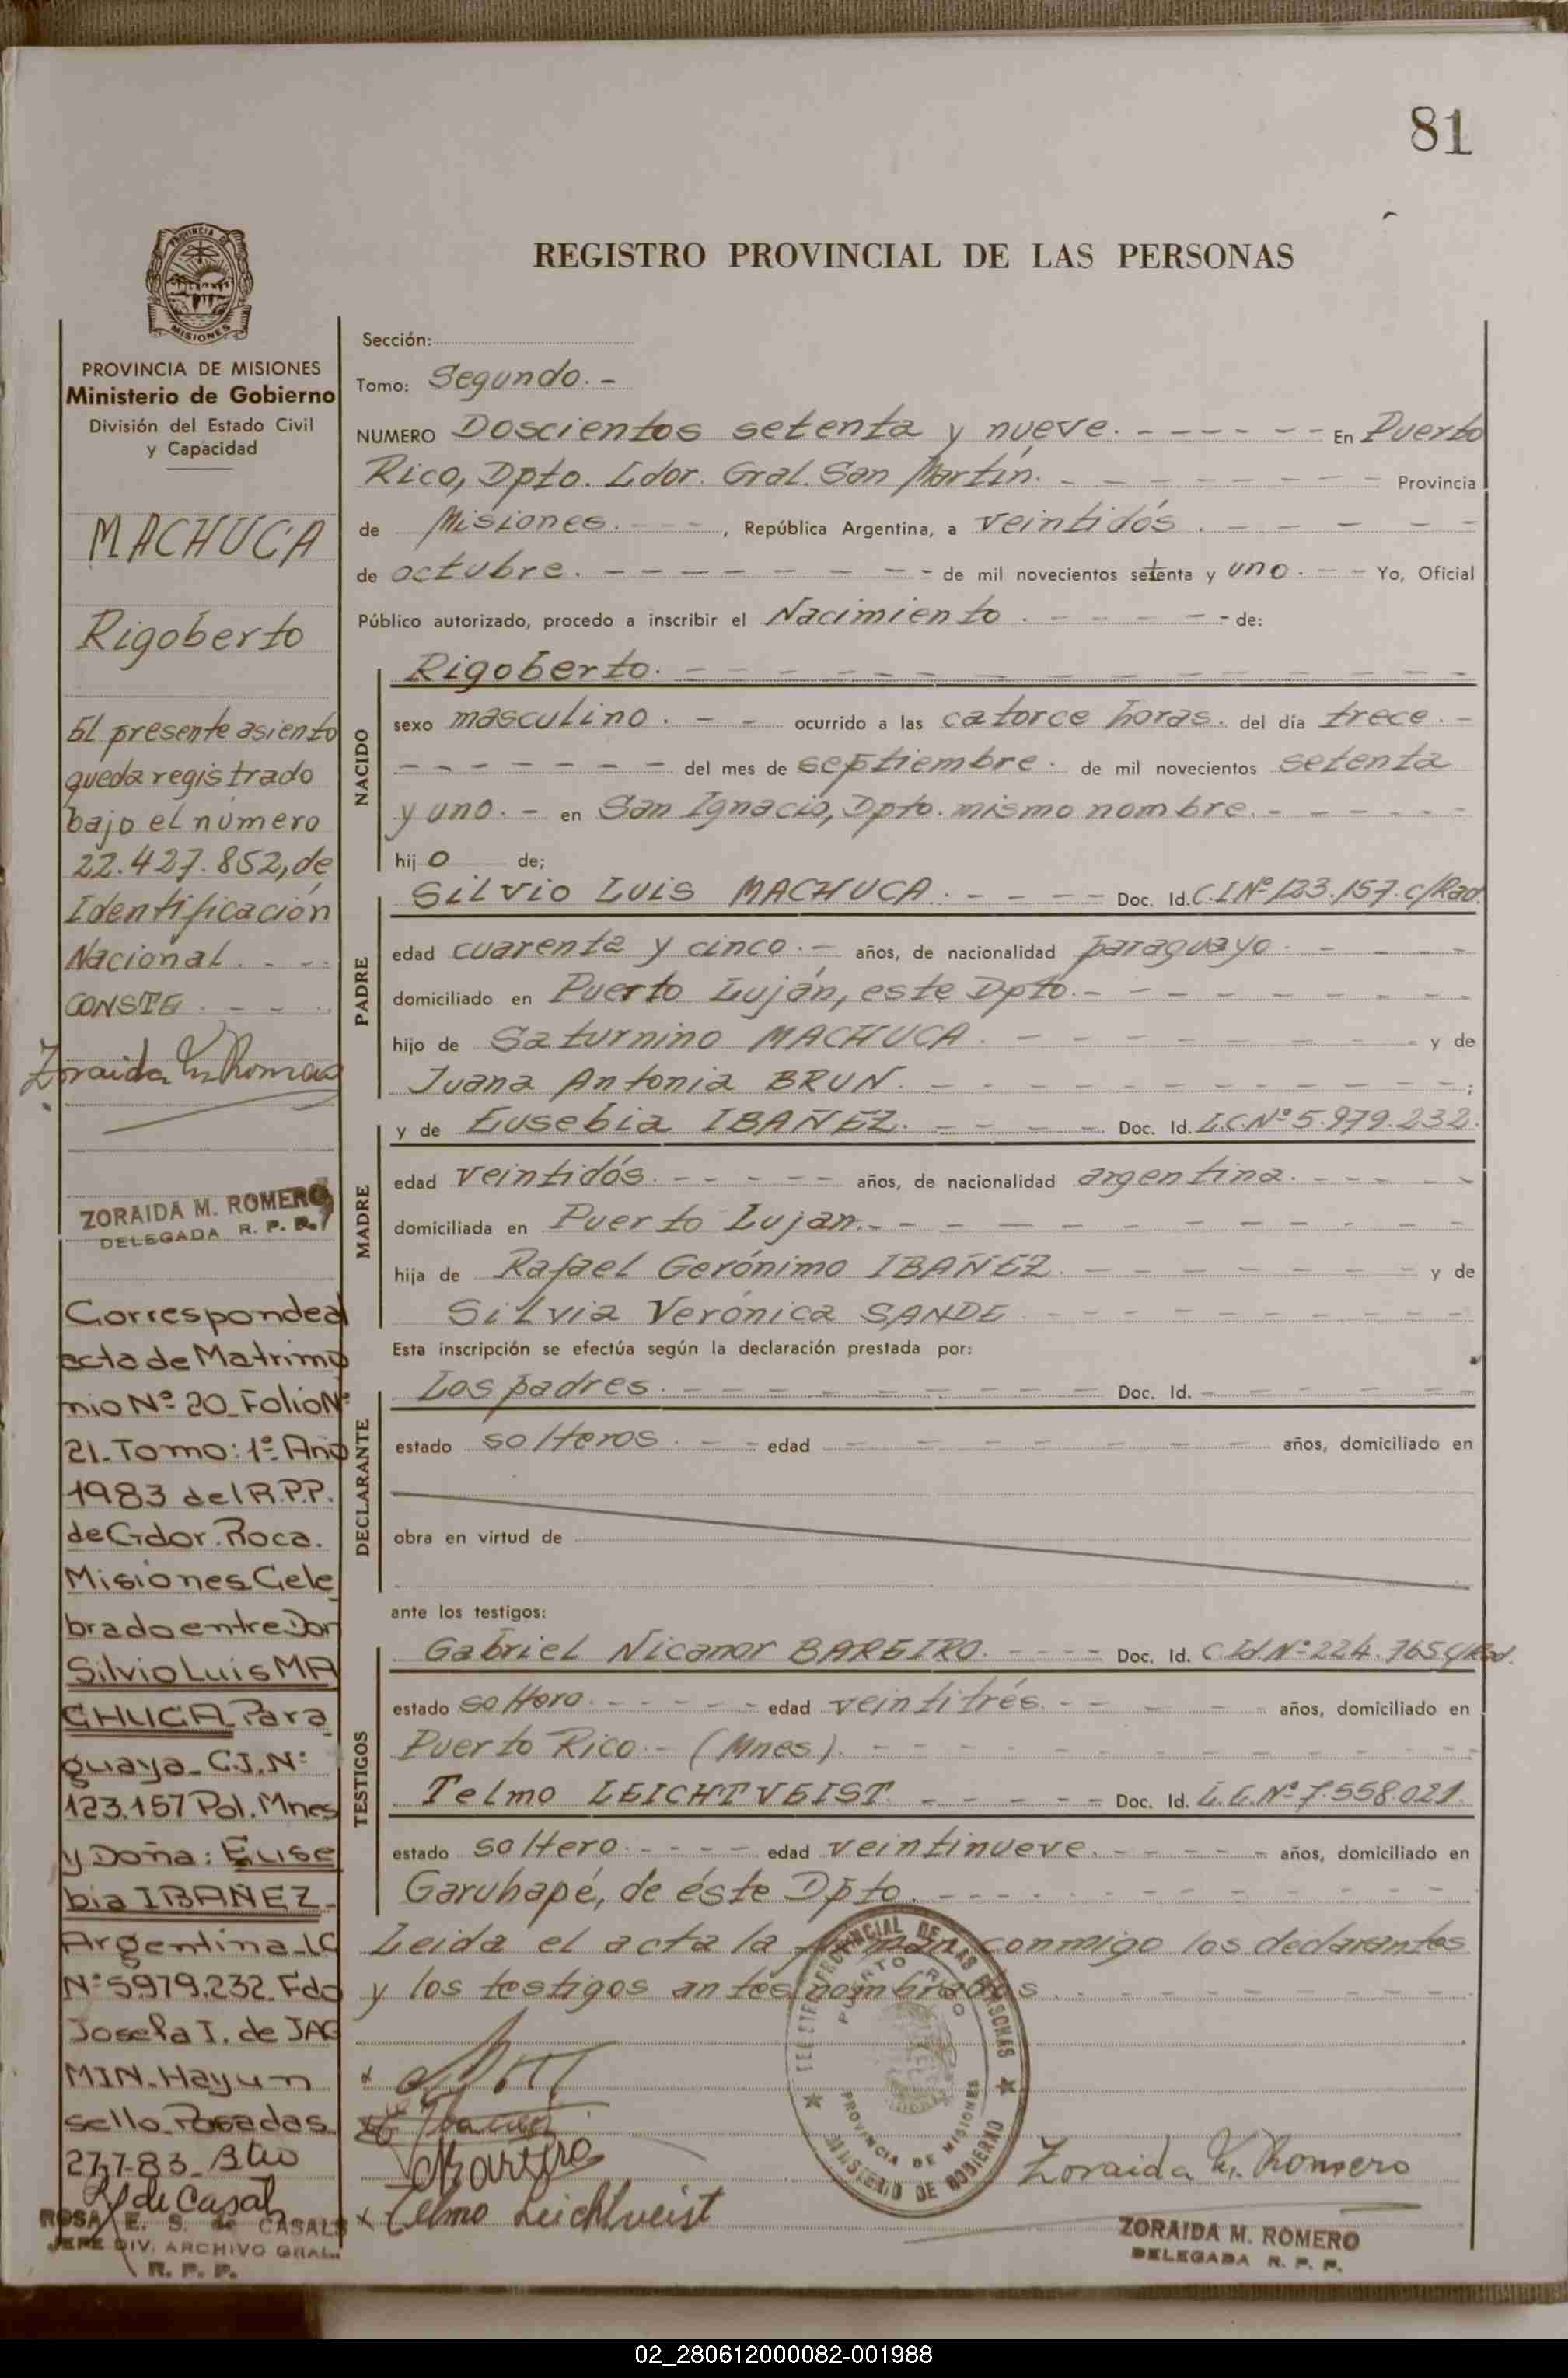 81
REGISTRO PROVINCIAL DE LAS PERSONAS
PROVINCIA DE
MISIONES
PROVINCIA DE MISIONES
Ministerio de Gobierno
División del Estado Civil
y Capacidad
MACHUCA
Rigoberto
El presente asiento
queda registrado
bajo el número
22.427.852, de
Identificación
Nacional. - - -
CONSTE. - - -
Zoraida M. Romero
ZORAIDA M. ROMERO
DELEGADA R. P. P.
Corresponde al
acta de Matrimo
nio Nº 20_Folio Nº
21_Tomo: 1º_Año
1983 del R.P.P.
de Gdor. Roca.
Misiones Cele
brado entre Don
Silvio Luis MA
CHUCA Para
guaya_C.I.Nº
123.157 Pol. Mnes
y Doña: Euse
bia IBAÑEZ_
Argentina_LC
Nº 5979.232_Fdo
Josefa I. de JAC
MIN_Hay un
sello_Posadas
27-7-83_
de Casals
ROSA E. S. de CASALS
JEFE DIV. ARCHIVO GRAL.
R. P. P.
Sección:
Tomo: Segundo. -
NUMERO Doscientos setenta y nueve. - - - - - - En Puerto
Rico, Dpto. Ldor. Gral. San Martín. - - - - - - - - Provincia
de Misiones. - - -, República Argentina, a veintidós. - - - - -
de octubre. - - - - - - - - - de mil novecientos setenta y uno. - - Yo, Oficial
Público autorizado, procedo a inscribir el Nacimiento. - - - - - de:
NACIDO
Rigoberto. - - - - - - - - - - - - - - -
sexo masculino. - - ocurrido a las catorce horas. del día trece. -
- - - - - - - del mes de septiembre. de mil novecientos setenta
y uno. - en San Ignacio, Dpto. mismo nombre. - - - - -
hij o de;
PADRE
Silvio Luis MACHUCA. - - - - Doc. Id. C.I Nº 123.157. c/Rad.
edad cuarenta y cinco. - años, de nacionalidad paraguayo. - - - -
domiciliado en Puerto Luján, este Dpto. - - - - - - - - -
hijo de Saturnino MACHUCA. - - - - - - - - y de
Juana Antonia BRUN. - - - - - - - - - - - -;
MADRE
y de Eusebia IBAÑEZ. - - - - Doc. Id. L.C.Nº 5.979.232.
edad veintidós. - - - - - - años, de nacionalidad argentina. - - - - -
domiciliada en Puerto Lujan. - - - - - - - - - - - -
hija de Rafael Gerónimo IBAÑEZ. - - - - - - - - y de
Silvia Verónica SANDE - - - - - - - - - -
Esta inscripción se efectúa según la declaración prestada por:
DECLARANTE
Los padres. - - - - - - - - - - Doc. Id. - - - - - -
estado solteros. - - - edad - - - - - - - - años, domiciliado en
obra en virtud de
ante los testigos:
TESTIGOS
Gabriel Nicanor BAREIRO. - - - - Doc. Id. C.Id.Nº 224.765 c/Rad.
estado soltero. - - - - - - edad veintitrés. - - - - - años, domiciliado en
Puerto Rico. - (Mnes). - - - - - - - - - - - -
Telmo LEICHTVEIST. - - - - - Doc. Id. L.E.Nº 7.558.021.
estado soltero. - - - - edad veintinueve. - - - - - años, domiciliado en
Garuhapé, de éste Dpto. - - - - - - - - - - -
Leida el acta la firman conmigo los declarantes
y los testigos antes nombrados. - - - - - - - -
PUERTO RICO
PROVINCIA DE MISIONES
MINISTERIO DE GOBIERNO
Telmo Leichtveist
Zoraida M. Romero
ZORAIDA M. ROMERO
DELEGADA R. P. P.
02_280612000082-001988